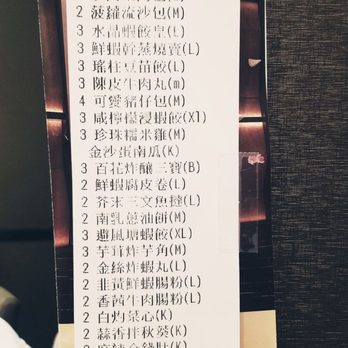 2 菠蘿流沙包(M)
3 水晶蝦餃皇(L)
3 鮮蝦幹蒸燒賣(L)
3 瑤柱豆苗餃(L)
3 陳皮牛肉丸(m)
4 可愛豬仔包(M)
3 咸檸檬浸蝦餃(XL)
3 珍珠糯米雞(M)
金沙蛋南瓜(K)
3 百花炸釀三寶(B)
2 鮮蝦腐皮卷(L)
2 芥末三文魚撻(L)
2 南乳蔥油餅(M)
3 避風塘蝦餃(XL)
3 芋茸炸芋角(M)
2 金絲炸蝦丸(L)
2 韭黃鮮蝦腸粉(L)
2 香茜牛肉腸粉(L)
2 白灼菜心(K)
2 蒜香拌秋葵(K)